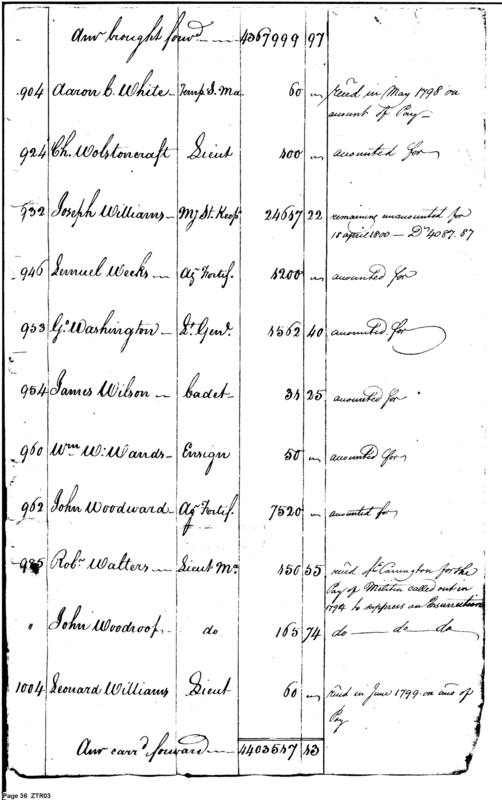 Am.t brought forw.d 4367999 97
904 Aaron C. White Temp S. Ma. 60 " rec'd in May 1798 on
account of Pay
924 Ch. Wolstoncraft Lieut 100 " accounted for
932 Joseph Williams My St. Keep.r 21647 22 remaining unaccounted for
18 april 1800 — Drs 4087.87
946 Lemuel Weeks Ag.t Fortif. 1200 " accounted for
953 G.o Washington Lt Gen.l 4562 40 accounted for
954 James Wilson Cadet 31 25 accounted for
960 Wm W. Wands Ensign 50 " accounted for
962 John Woodward Ag.t Fortif. 7520 " accounted for
985 Rob.t Walters Lieut Ma. 150 55 rec'd of Carrington for the
Pay of Militia called out in
1794 to suppress an Insurrection
" John Woodroof do 165 74 do do do
1004 Leonard Williams Lieut 60 " rec'd in June 1799 on acc of
Pay
Am.t carr.d forward 4403547 13
Page 36 ZTR03